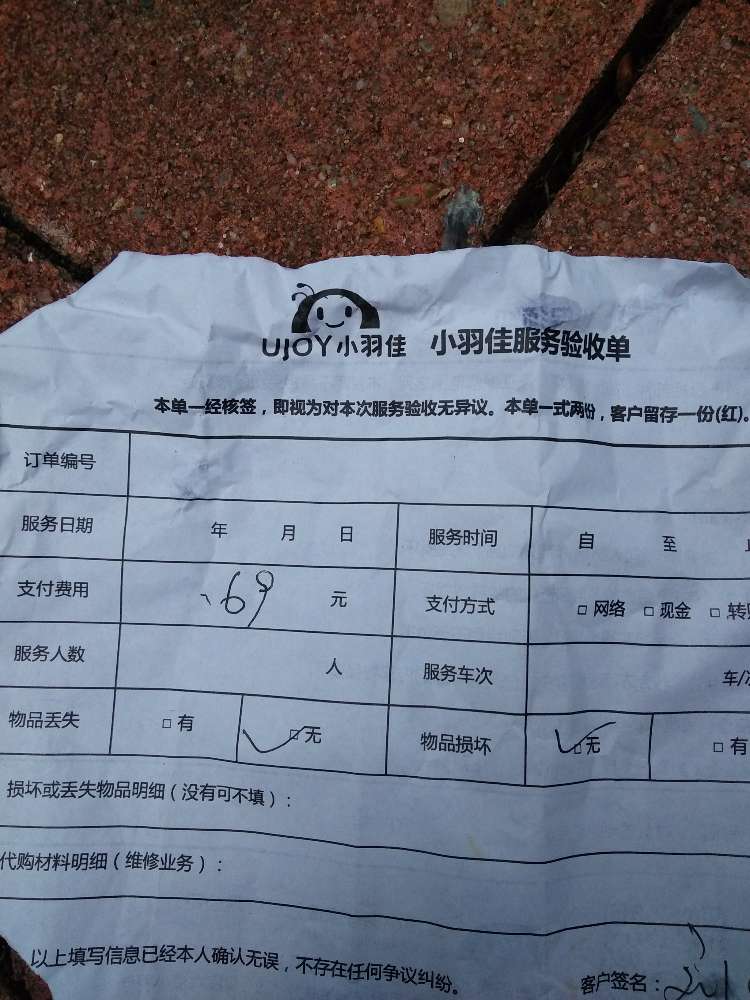 UJOY小羽佳 小羽佳服务验收单
本单一经核签，即视为对本次服务验收无异议。本单一式两份，客户留存一份(红)。
订单编号
服务日期 年 月 日 服务时间 自 至
支付费用 69 元 支付方式 □ 网络 □ 现金 □ 转账
服务人数 人 服务车次 车/次
物品丢失 □ 有 □ 无 物品损坏 □ 无 □ 有
损坏或丢失物品明细（没有可不填）：
代购材料明细（维修业务）：
以上填写信息已经本人确认无误，不存在任何争议纠纷。
客户签名：